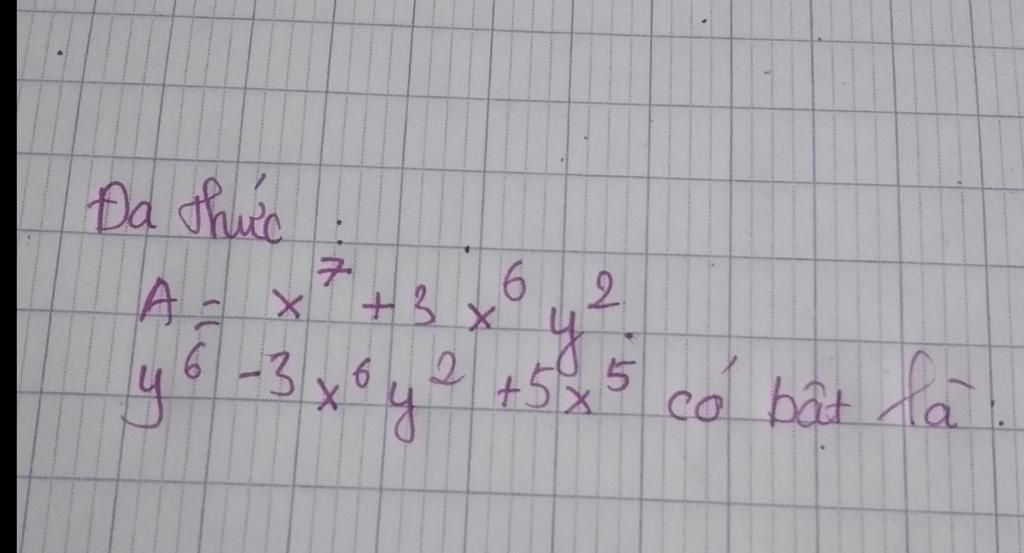 Đa thức :
A = x⁷ + 3 x⁶ y².
y⁶ - 3 x⁶ y² + 5x⁵ có bật là :